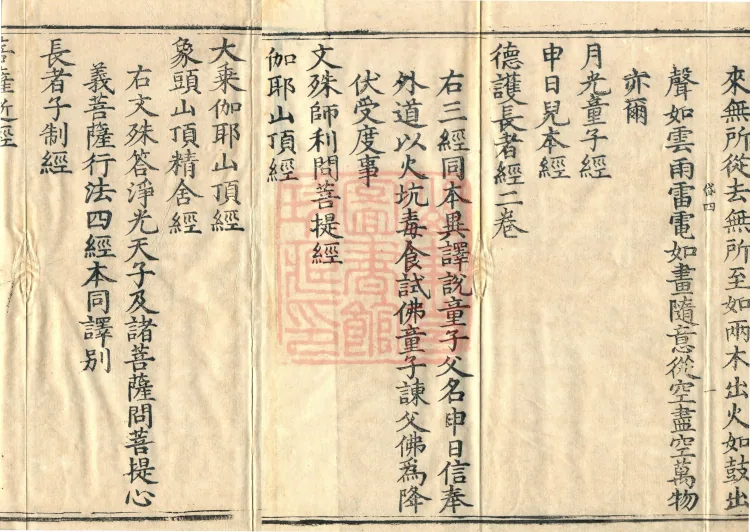 來無所從去無所至如兩木出火如鼓出
聲如雲雨雷電如畫隨意從空盡空萬物
亦爾
月光童子經
申日兒本經
德護長者經二卷
右三經同本異譯說童子父名申日信奉
外道以火坑毒食試佛童子諫父佛爲降
伏受度事
文殊師利問菩提經
伽耶山頂經
大乘伽耶山頂經
象頭山頂精舍經
右文殊答淨光天子及諸菩薩問菩提心
義菩薩行法四經本同譯别
長者子制經
菩薩逝經